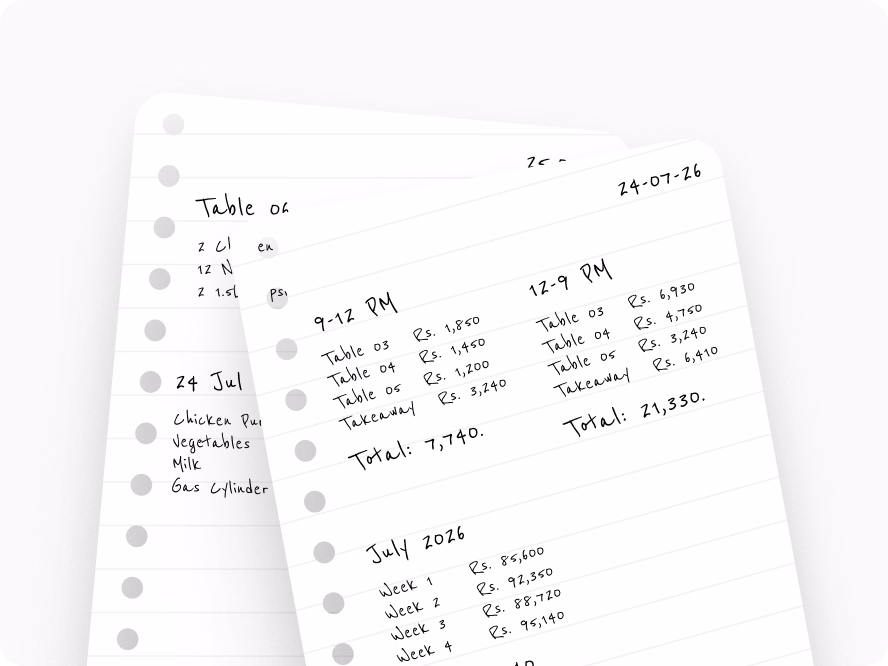 24-07-26
9-12 PM
Table 03 Rs. 1,850
Table 04 Rs. 1,450
Table 05 Rs. 1,200
Takeaway Rs. 3,240
Total: 7,740.
12-9 PM
Table 03 Rs. 6,930
Table 04 Rs. 4,750
Table 05 Rs. 3,240
Takeaway Rs. 6,410
Total: 21,330.
July 2026
Week 1 Rs. 85,600
Week 2 Rs. 92,350
Week 3 Rs. 88,720
Week 4 Rs. 95,140
Table
2
12
2
24 Jul
Chicken
Vegetables
Milk
Gas Cylinder